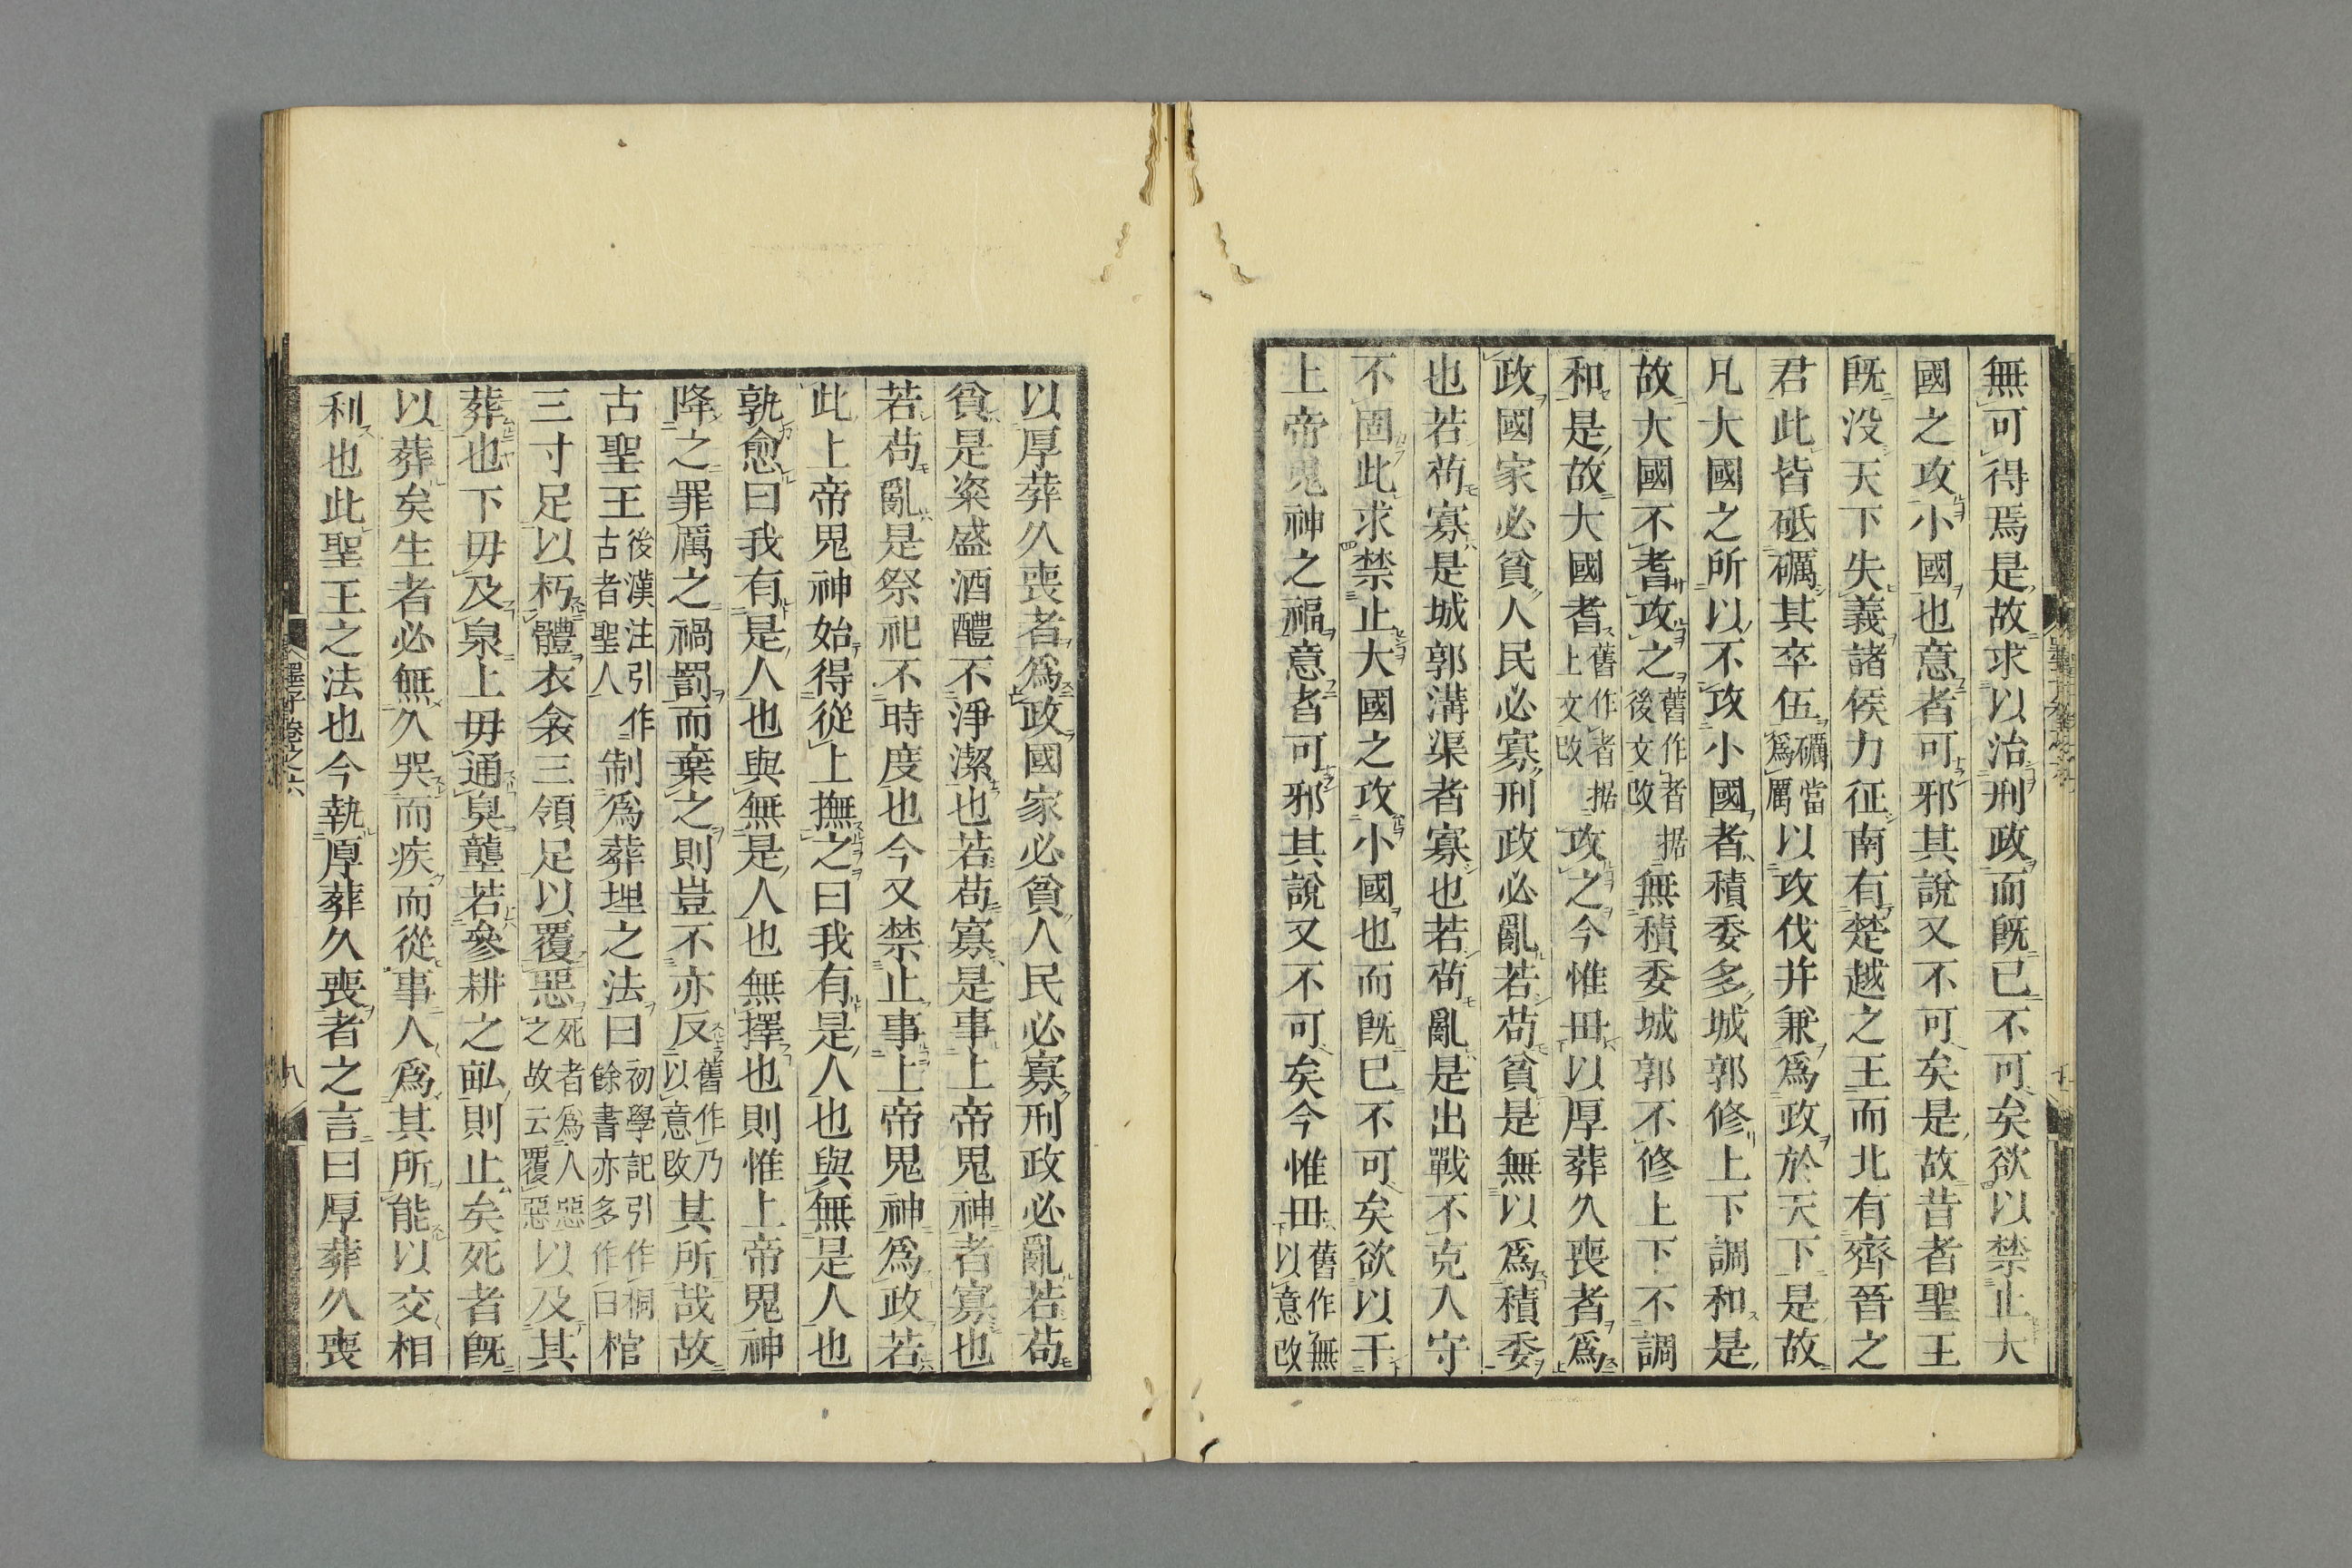 無可得焉是故求以治刑政而旣已不可矣欲以禁止大
國之攻小國也意者可邪其說又不可矣是故昔者聖王
旣没天下失義諸侯力征南有楚越之王而北有齊晉之
君此皆砥礪其卒伍礪當爲厲以攻伐并兼爲政於天下是故
凡大國之所以不攻小國者積委多城郭修上下調和是
故大國不耆攻之舊作者据後文改無積委城郭不修上下不調
和是故大國耆舊作者据上文改攻之今惟毋以厚葬久喪者爲
政國家必貧人民必寡刑政必亂若苟貧是無以爲積委
也若苟寡是城郭溝渠者寡也若苟亂是出戰不克入守
不固此求禁止大國之攻小國也而旣已不可矣欲以干
上帝鬼神之福意者可邪其說又不可矣今惟毋舊作無以意改
以厚葬久喪者爲政國家必貧人民必寡刑政必亂若苟
貧是粢盛酒醴不淨潔也若苟寡是事上帝鬼神者寡也
若苟亂是祭祀不時度也今又禁止事上帝鬼神爲政若
此上帝鬼神始得從上撫之曰我有是人也與無是人也
孰愈曰我有是人也與無是人也無擇也則惟上帝鬼神
降之罪厲之禍罰而棄之則豈不亦反舊作乃以意改其所哉故
古聖王後漢注引作古者聖人制爲葬埋之法曰初學記引作桐餘書亦多作曰棺
三寸足以朽體衣衾三領足以覆惡死者爲人惡之故云覆惡以及其
葬也下毋及泉上毋通臭壟若參耕之畝則止矣死者旣
以葬矣生者必無久哭而疾而從事人爲其所能以交相
利也此聖王之法也今執厚葬久喪者之言曰厚葬久喪
墨子卷之六
八